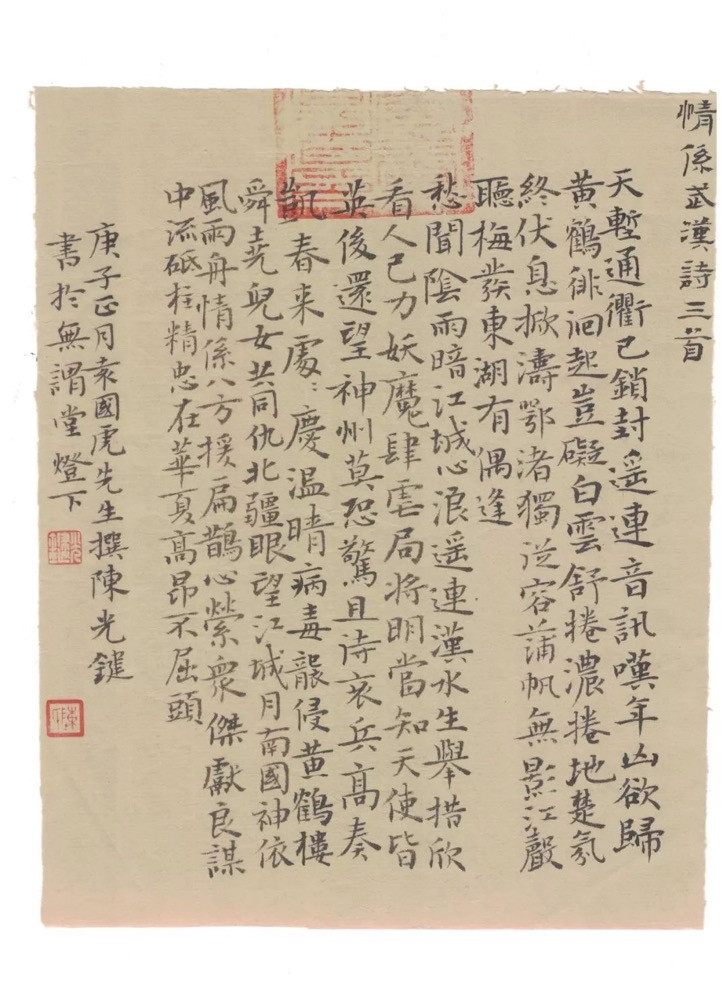 情係武漢詩三首
天塹通衢已鎖封遥連音訊嘆年凶欲歸
黄鶴徘洄起豈礙白雲舒捲濃捲地楚氛
終伏息掀濤鄂渚獨從容蒲帆無影江聲
聽梅發東湖有偶逢
愁聞陰雨暗江城心浪遥連漢水生舉措欣
看人已力妖魔肆虐局將明當知天使皆
英後還望神州莫恐驚且待哀兵高奏
凱春来處:慶温晴病毒襲侵黄鶴樓
舜堯兒女共同仇北疆眼望江城月南國神依
風雨舟情係八方援扁鵲心縈衆傑獻良謀
中流砥柱精忠在華夏高昂不屈頭
庚子正月袁國虎先生撰陳光鍵
書於無謂堂燈下